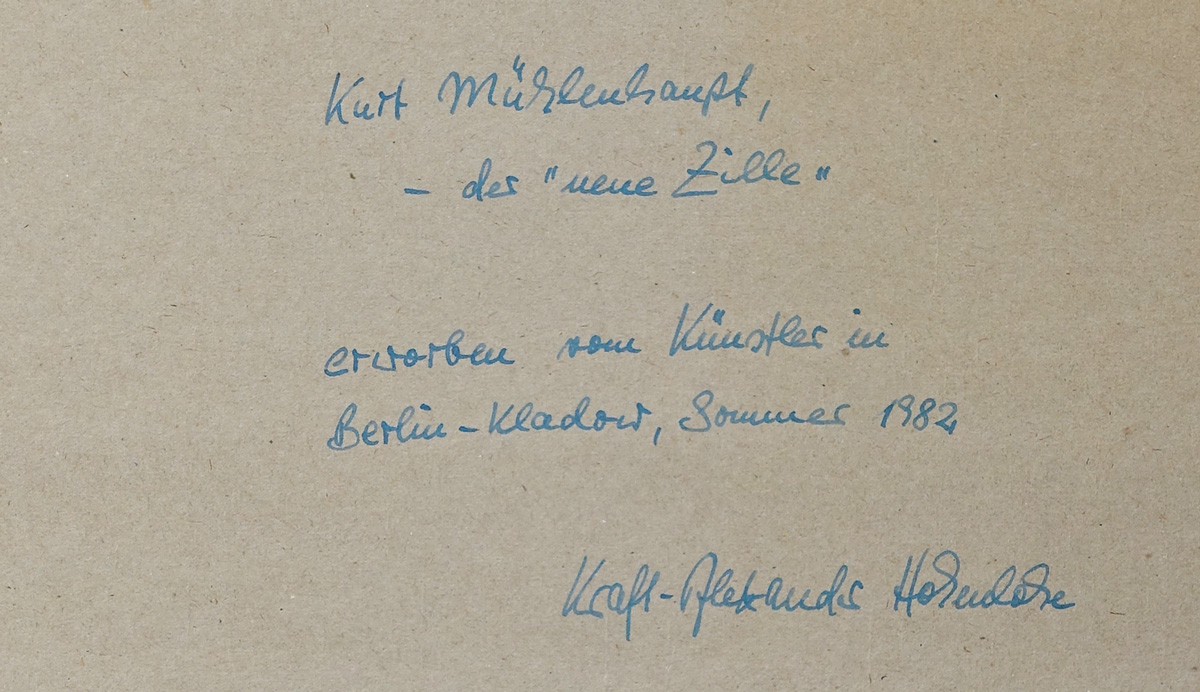 Kurt Mühlenhaupt,
- der "neue Zille"
erworben vom Künstler in
Berlin-Kladow, Sommer 1982
Kraft-Alexander Hohenlohe